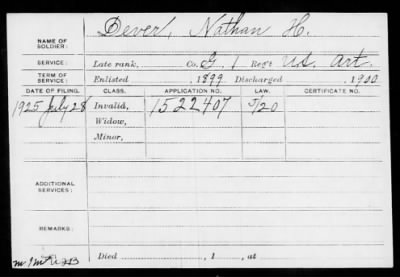 Dever, Nathan H.
NAME OF SOLDIER:
SERVICE: Late rank, Co. G, 1 Reg't U.S. Art.
TERM OF SERVICE: Enlisted , 1899 Discharged , 1900
DATE OF FILING. CLASS. APPLICATION NO. LAW. CERTIFICATE NO.
1925 July 28 Invalid, 1522407 J/20
Widow,
Minor,
ADDITIONAL SERVICES:
REMARKS:
Died , 1 , at